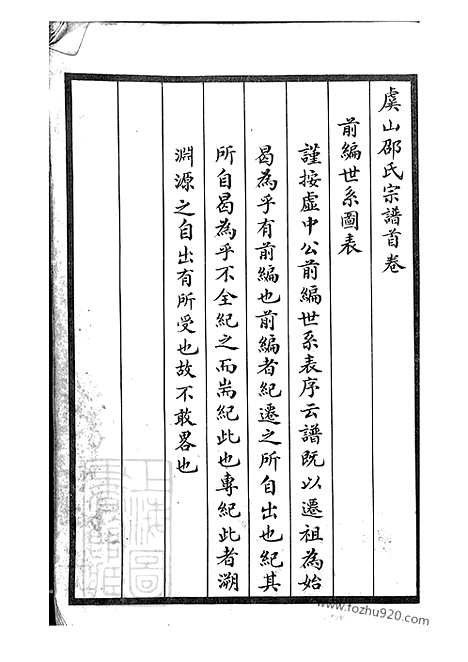 虞山邵氏宗譜首卷
前編世系圖表
謹按虛中公前編世系表序云譜既以遷祖為始
曷為乎有前編也前編者紀遷之所自出也紀其
所自曷為乎不全紀之而耑紀此也專紀此者溯
淵源之自出有所受也故不敢畧也
上海圖
www.fozhu920.com